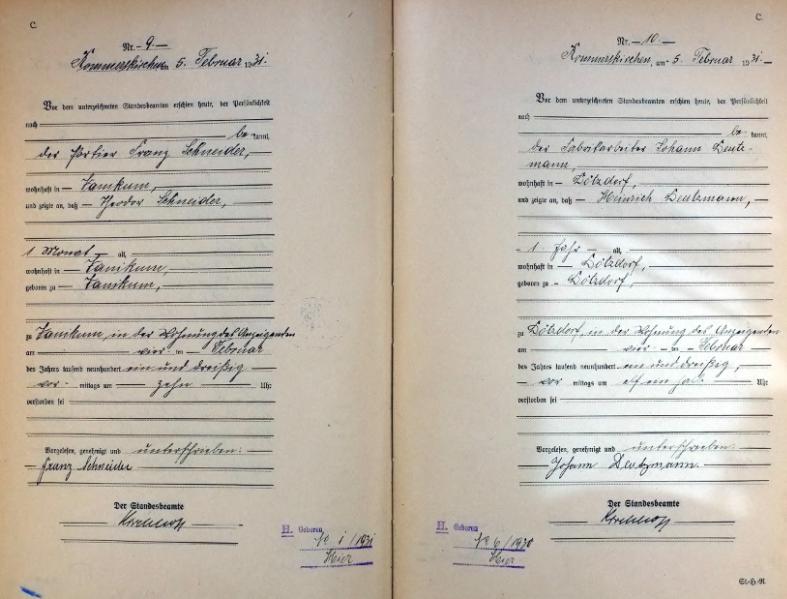 C.
Nr. — 9. —
Rommerskirchen, am 5. Februar 1931.
Vor dem unterzeichneten Standesbeamten erschien heute, der Persönlichkeit
nach
be kannt,
der Portier Franz Schneider,
wohnhaft in — Vanikum,
und zeigte an, daß — Theodor Schneider,
1 Monat — alt,
wohnhaft in — Vanikum,
geboren zu — Vanikum,
zu Vanikum, in der Wohnung des Anzeigenden
am — vier — ten — Februar
des Jahres tausend neunhundert ein und dreißig
vor - mittags um — zehn — Uhr
verstorben sei
Vorgelesen, genehmigt und unterschrieben:
— Franz Schneider
Der Standesbeamte
Kirchhoff
H. Geboren
No 1 / 1931
Meier
C.
Nr. — 10. —
Rommerskirchen, am 5. Februar 1931.
Vor dem unterzeichneten Standesbeamten erschien heute, der Persönlichkeit
nach
be kannt,
der Fabrikarbeiter Johann Deutz-
mann,
wohnhaft in — Sötzdorf,
und zeigte an, daß — Heinrich Deutzmann,
- 1 - Jahr — alt,
wohnhaft in — Sötzdorf,
geboren zu - Sötzdorf,
zu Sötzdorf, in der Wohnung des Anzeigenden
am — vier - ten — Februar
des Jahres tausend neunhundert ein und dreißig,
— vor mittags um — elf ein — Uhr
verstorben sei
Vorgelesen, genehmigt und unterschrieben:
— Johann Deutzmann —
Der Standesbeamte
Kirchhoff
H. Geboren
No 6 / 1930
Meier
St.-H.-R.